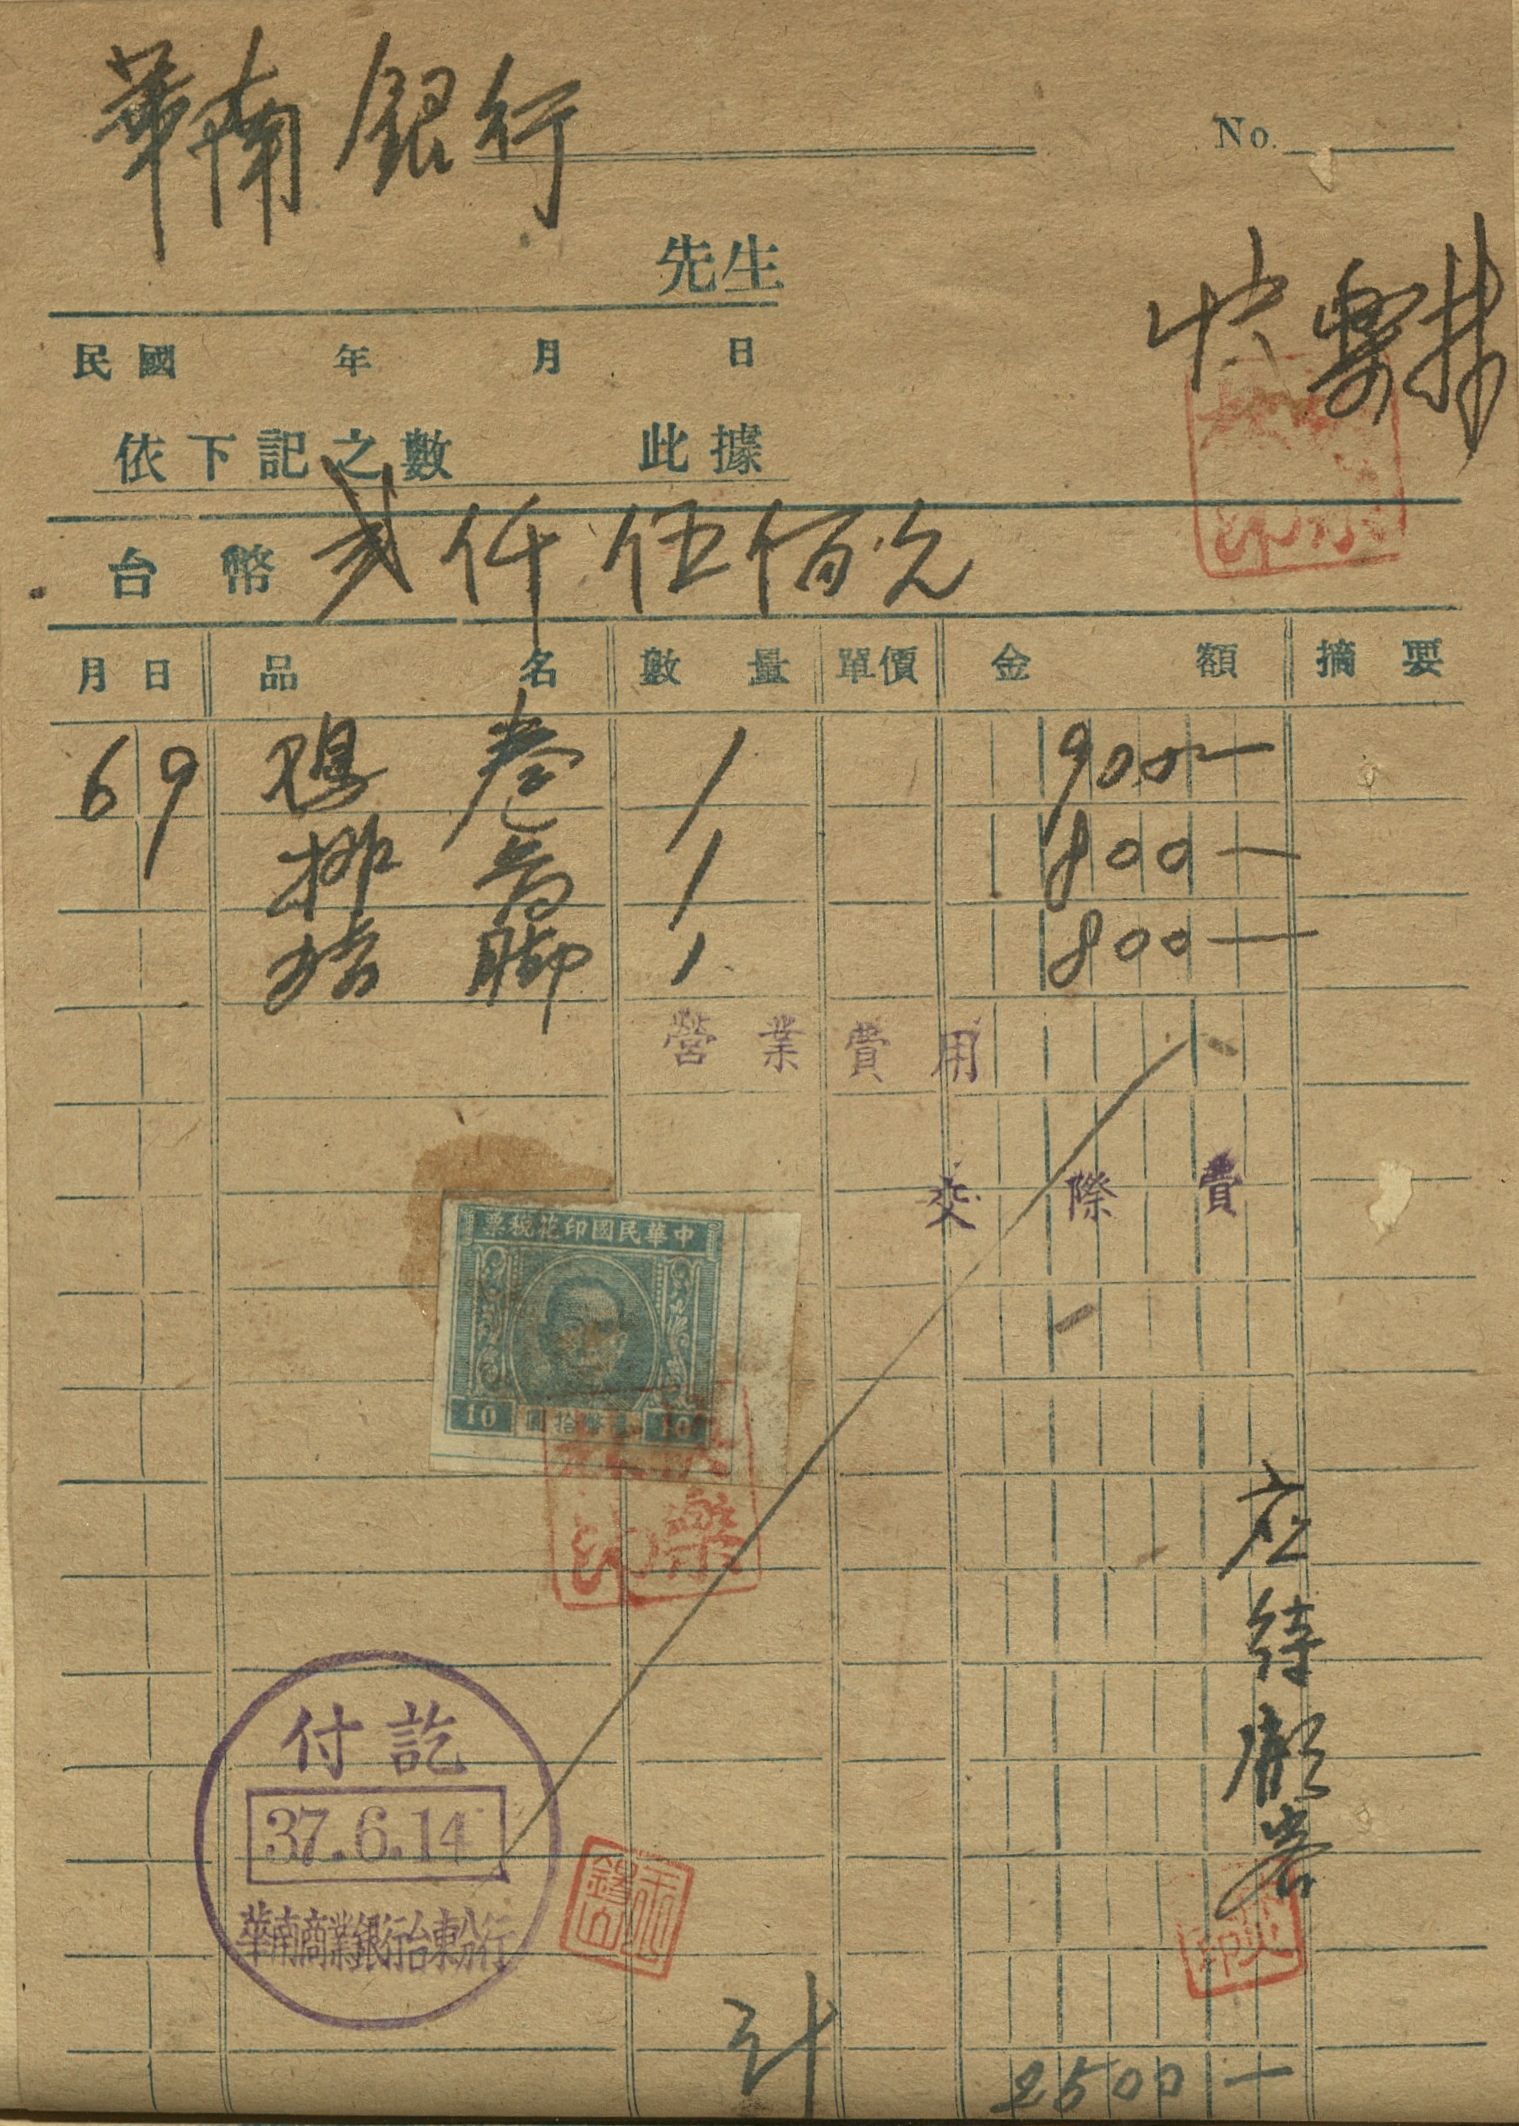 華南銀行
No.
先生
快樂林
民國 年 月 日
依下記之數 此據
台幣 貳仟伍佰元
月 日 品名 數量 單價 金額 摘要
6 9 卷 1 900—
排骨 1 800—
猪脚 1 800—
營業費用
交際費
中華民國印花稅票
10 10
快樂林印
应待顧客
付訖
37.6.14
華南商業銀行台東分行
計 2500—